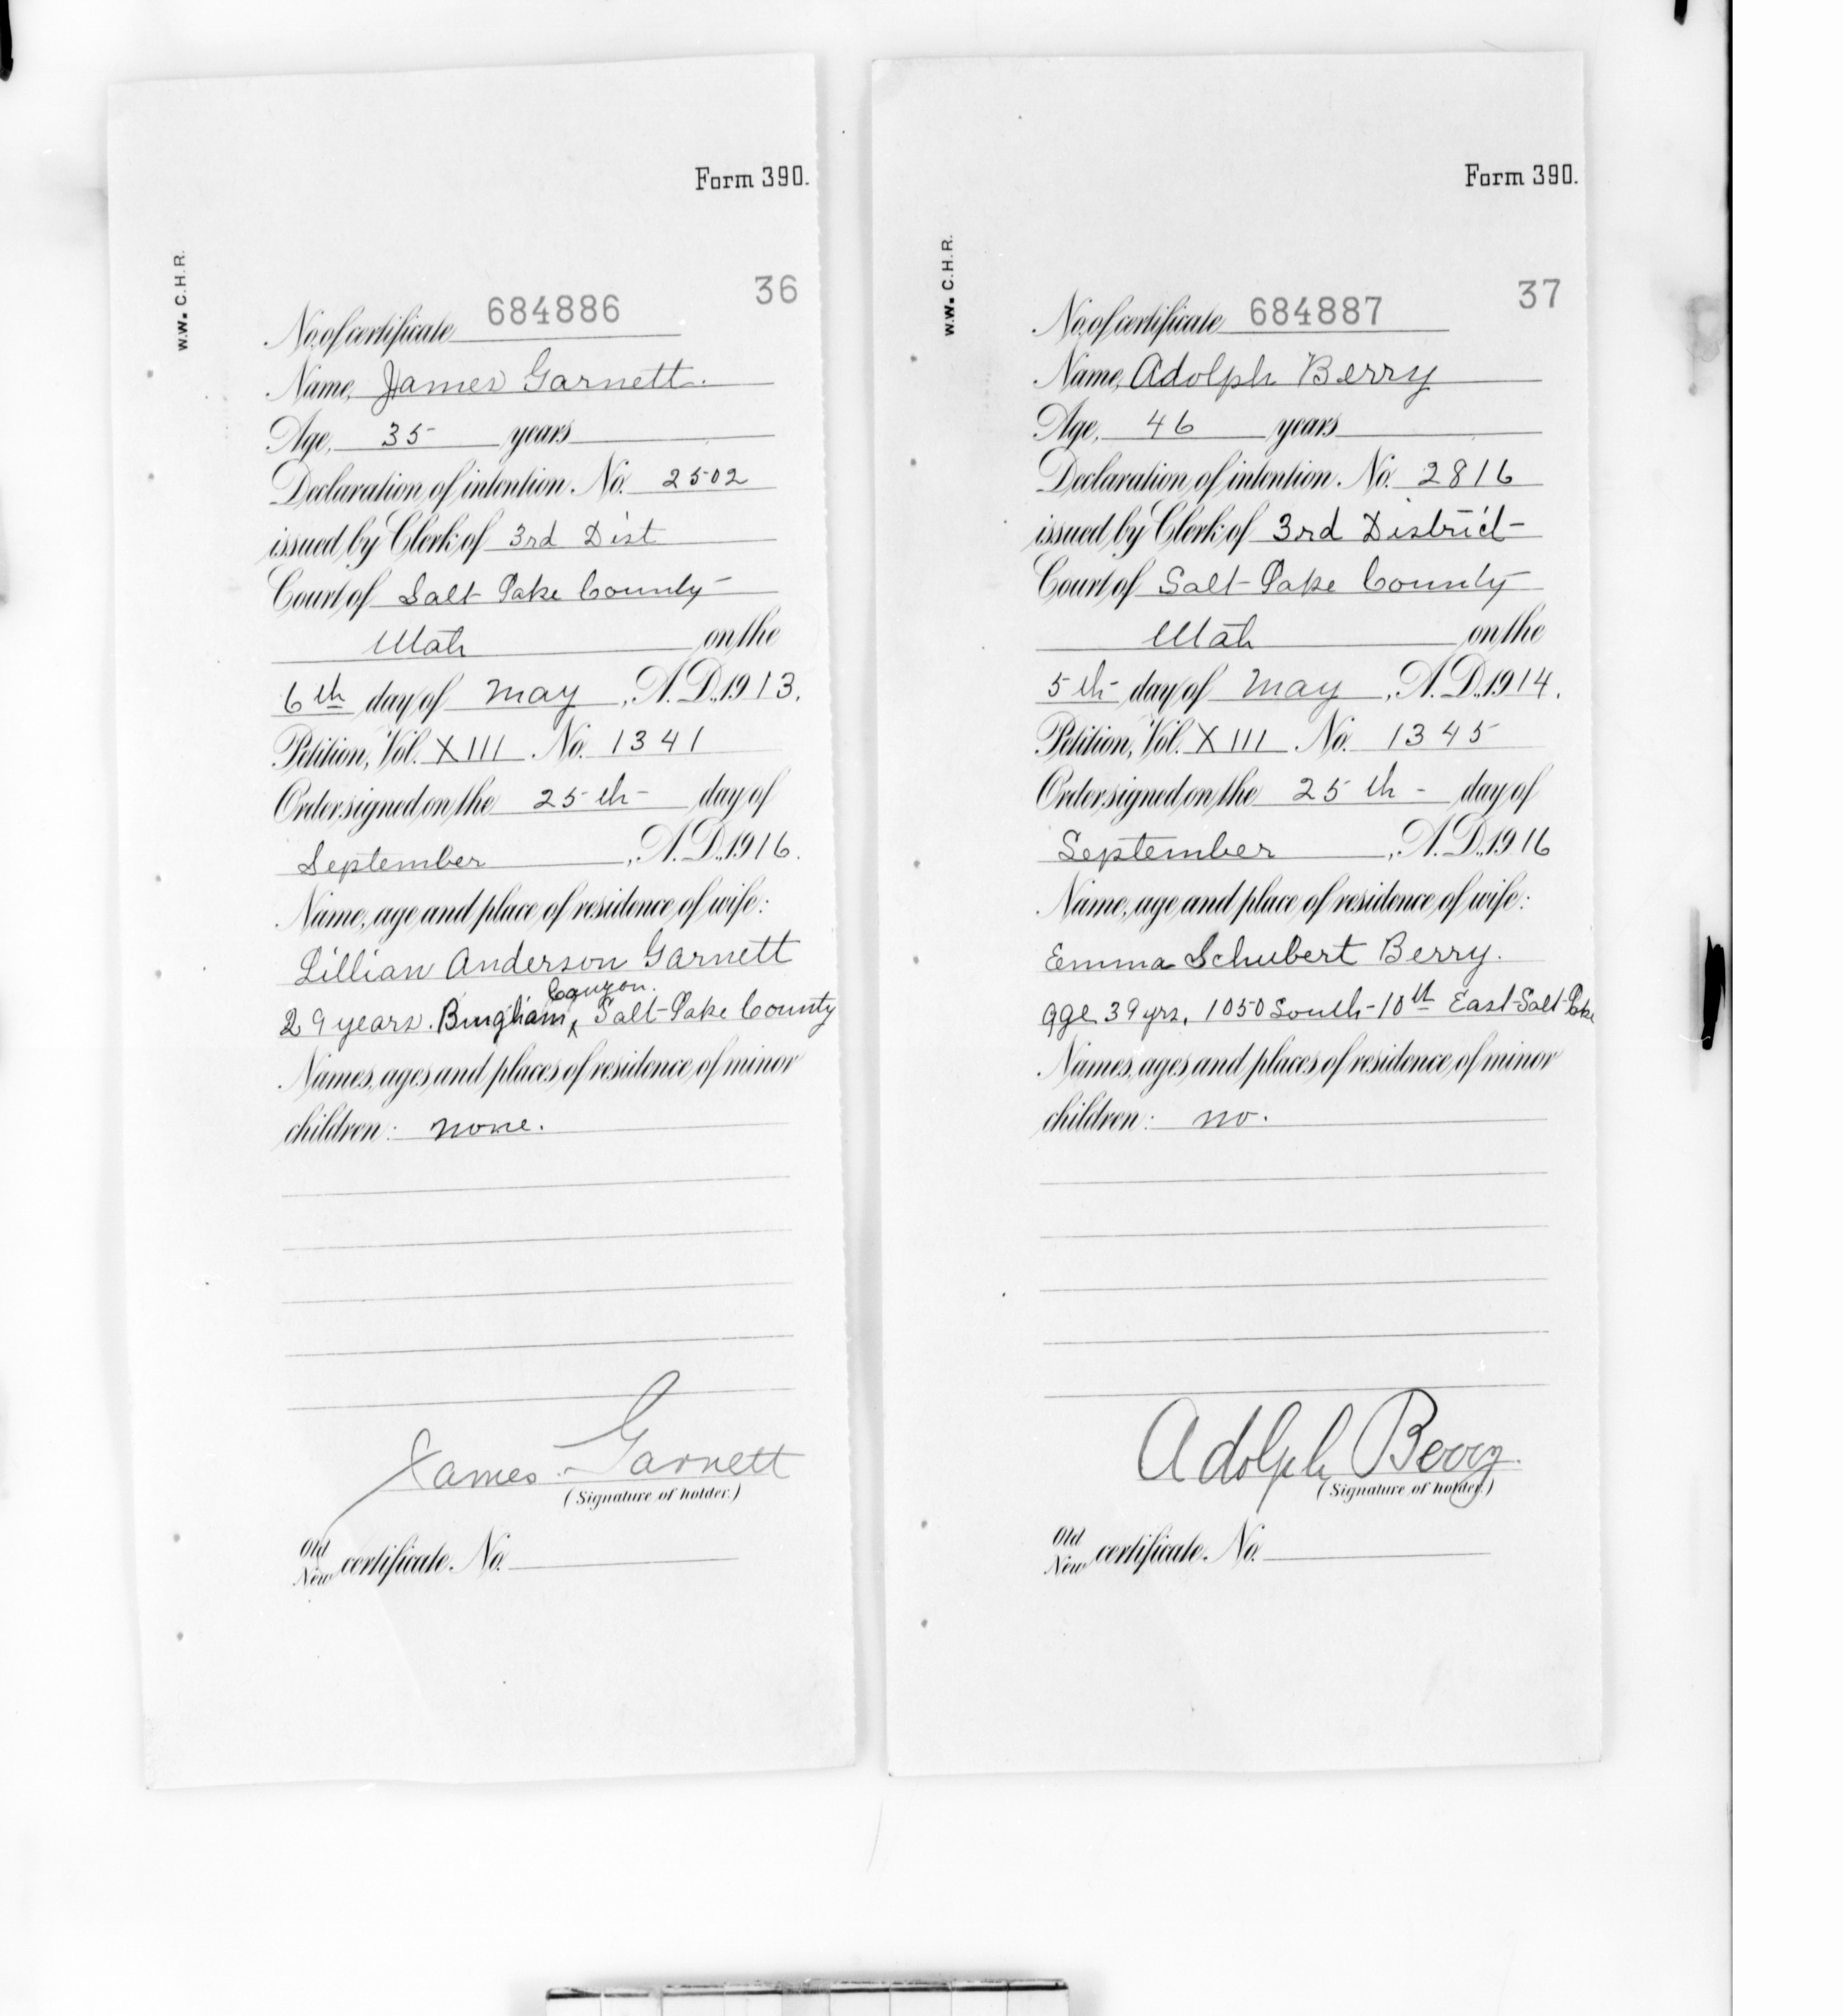 Form 390.
W.W. C.H.R.
36
No. of certificate 684886
Name, James Garnett.
Age, 35 years
Declaration of intention. No. 2502
issued by Clerk of 3rd Dist
Court of Salt Lake County
Utah on the
6th day of May, A.D. 1913.
Petition, Vol. XIII No. 1341
Order signed on the 25th day of
September, A.D. 1916.
Name, age and place of residence of wife:
Lillian Anderson Garnett
Canyon.
29 years. Bingham, Salt Lake County
Names, ages and places of residence of minor
children: none.
James Garnett
(Signature of holder.)
Old
New certificate. No.
Form 390.
W.W. C.H.R.
37
No. of certificate 684887
Name, Adolph Berry
Age, 46 years
Declaration of intention. No. 2816
issued by Clerk of 3rd District
Court of Salt Lake County
Utah on the
5th day of May, A.D. 1914.
Petition, Vol. XIII No. 1345
Order signed on the 25th day of
September, A.D. 1916
Name, age and place of residence of wife:
Emma Schubert Berry.
age 39 yrs, 1050 South-10th East-Salt Lake
Names, ages and places of residence of minor
children: no.
Adolph Berry.
(Signature of holder.)
Old
New certificate. No.